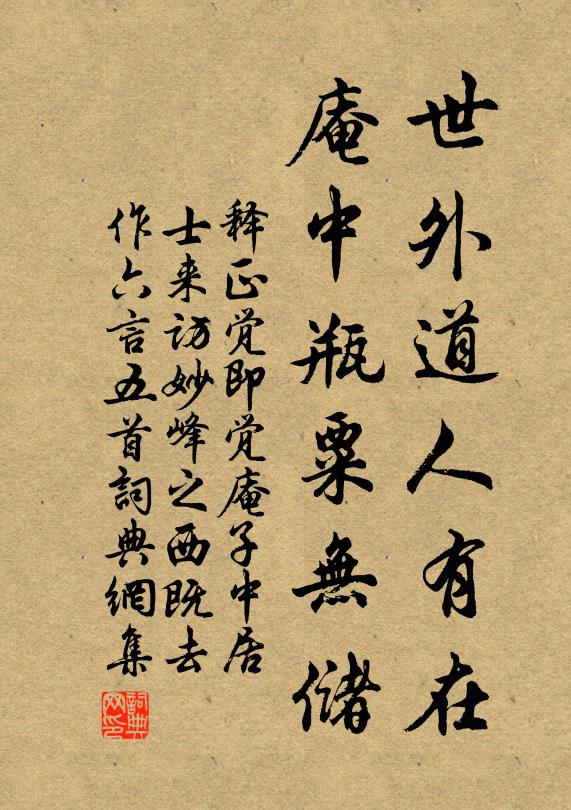 世外道人有在
庵中瓶粟無儲
释正觉即觉庵子中居
士来访妙峰之西既去
作六言五首詞典網集
詞典网印